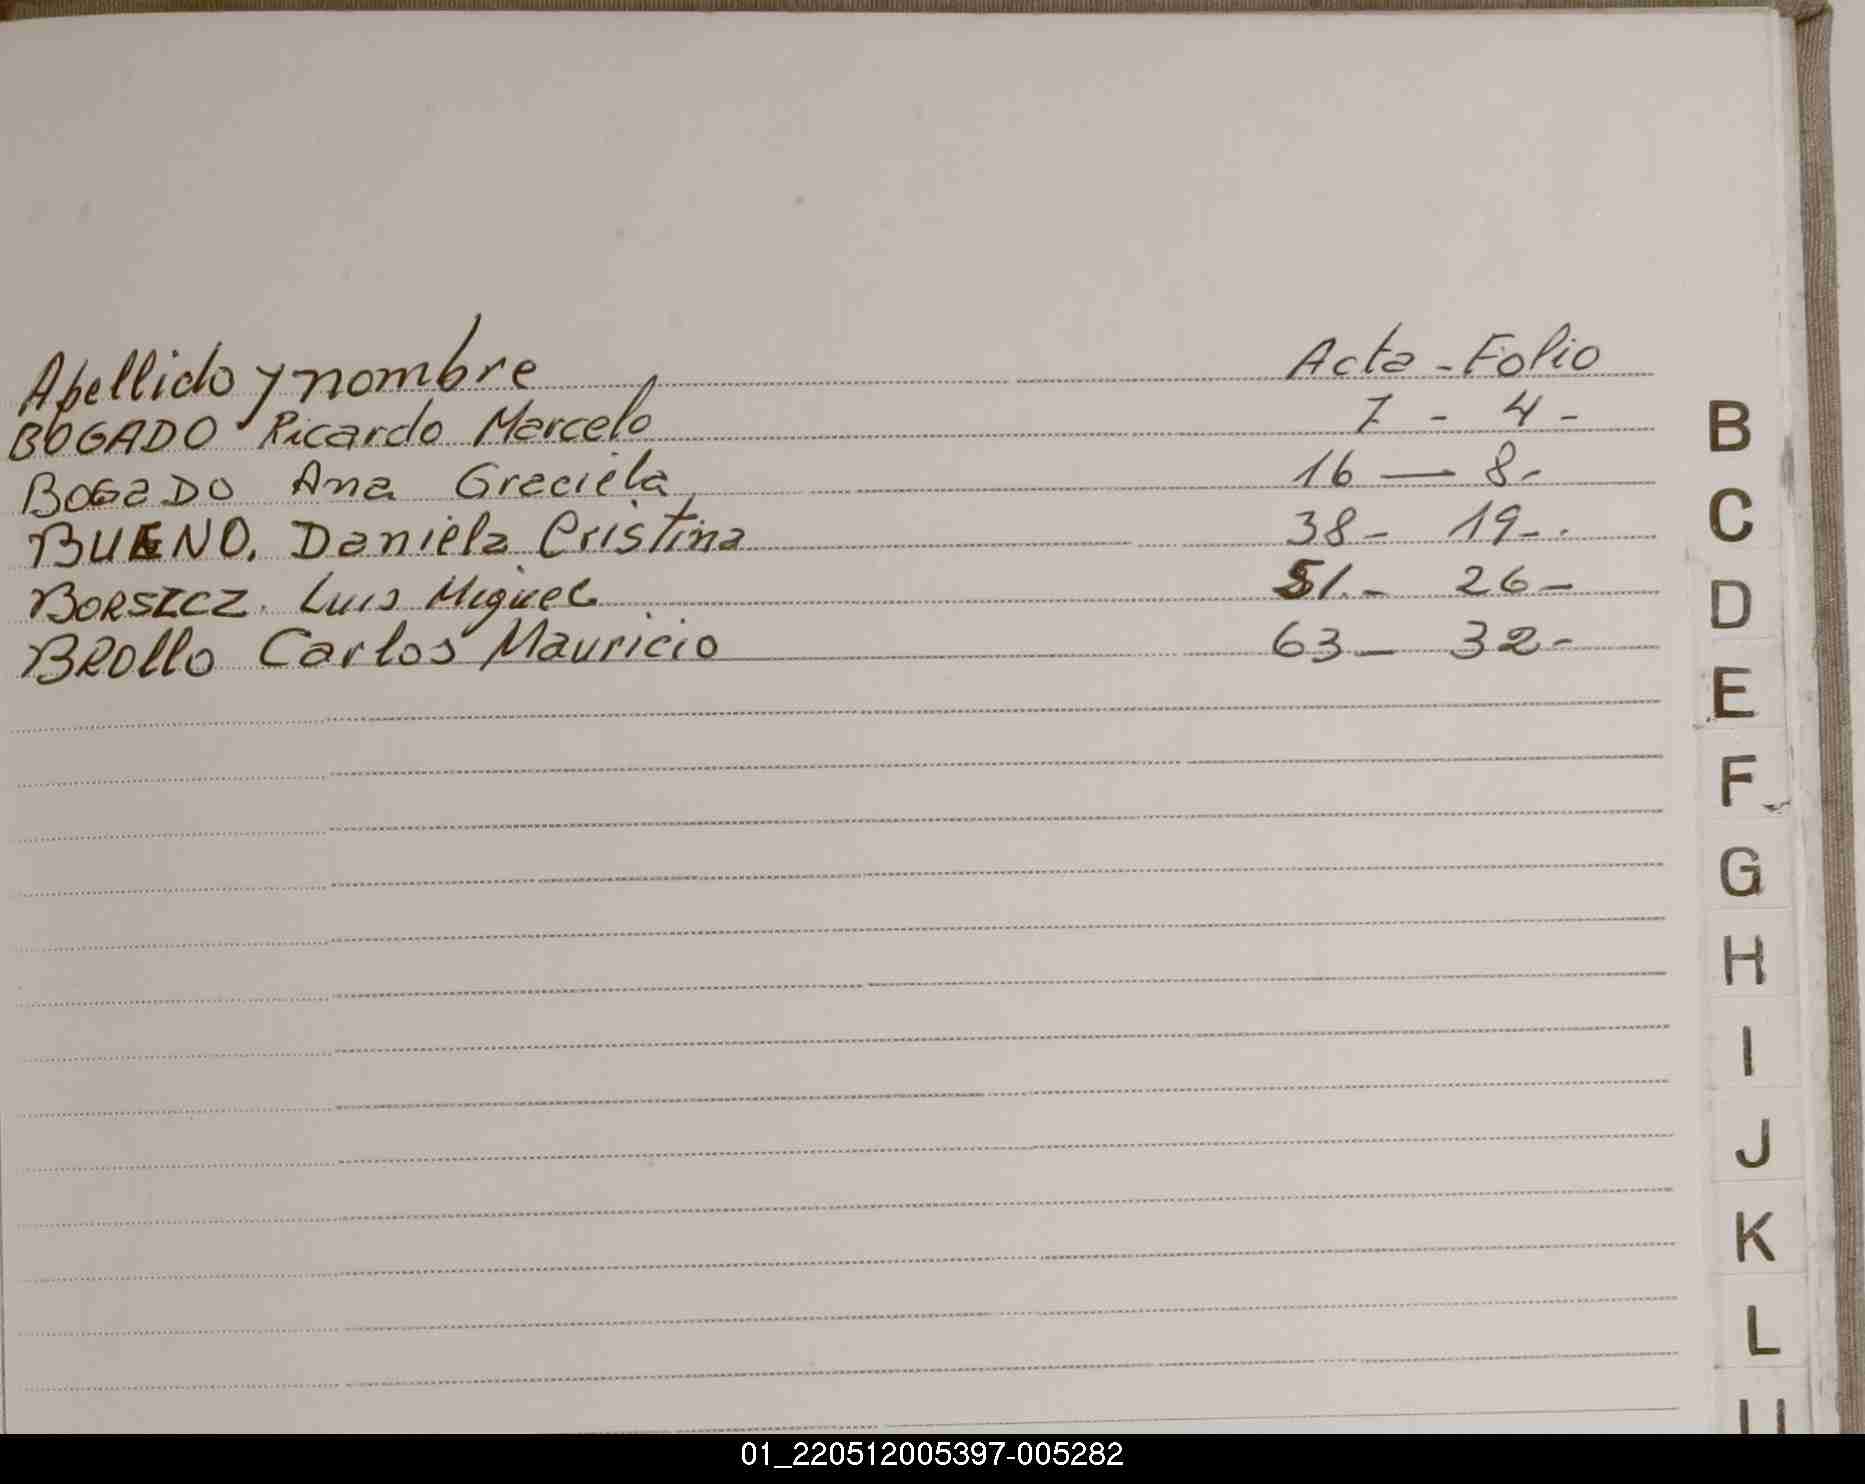 Apellido y nombre Acta - Folio
BOGADO Ricardo Marcelo 7 - 4 -
BOGADO Ana Graciela 16 — 8 -
BUENO, Daniela Cristina 38 - 19 - .
BORSZCZ. Luis Miguel 51. - 26 -
BROLLO Carlos Mauricio 63 - 32 -
B
C
D
E
F
G
H
I
J
K
L
01_220512005397-005282